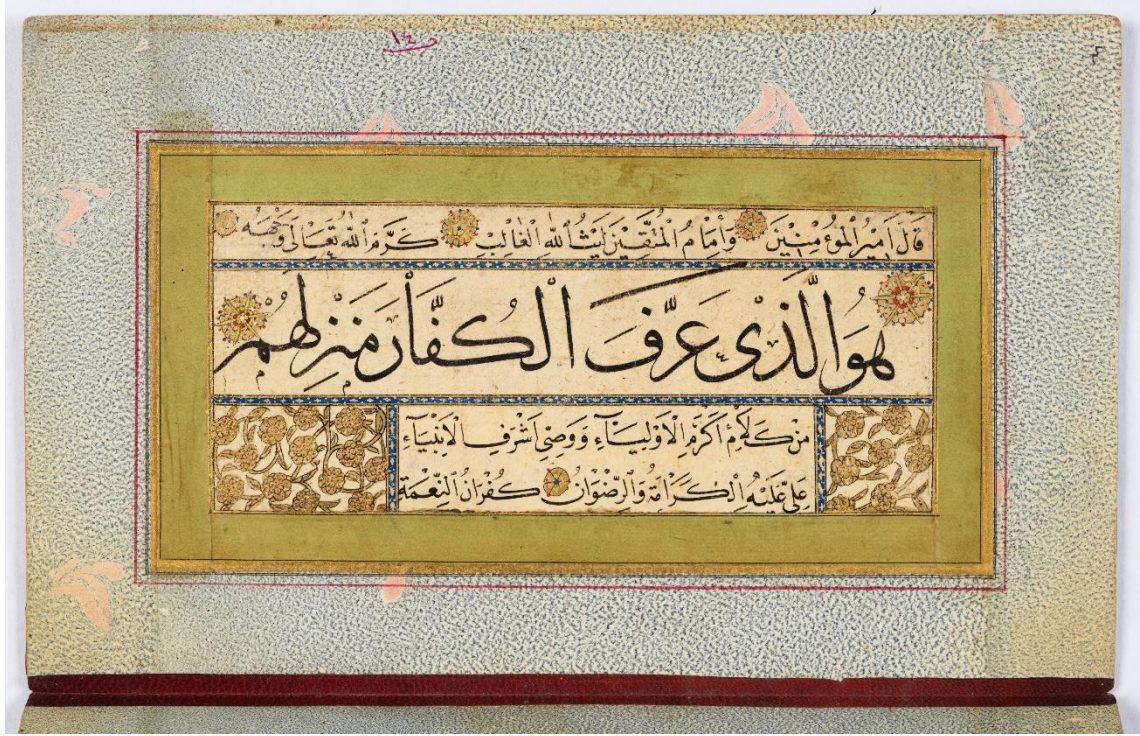 ١٤
قَالَ اَمِيْرُ الْمُؤْمِنِيْنَ وَاِمَامُ الْمُتَّقِيْنَ لَيْثُ اللّٰهِ الْغَالِبِ كَرَّمَ اللّٰهُ تَعَالٰى وَجْهَهُ
هُوَ الَّذِىْ عَرَّفَ الْكُفَّارَ مَنْزِلَهُمْ
مِنْ كَلَامِ اَكْرَمِ الْاَوْلِيَآءِ وَوَصِىِّ اَشْرَفِ الْاَنْبِيَآءِ
عَلِىٍّ عَلَيْهِ الْكَرَامَةُ وَالرِّضْوَانُ كُفْرَانُ النِّعْمَةِ